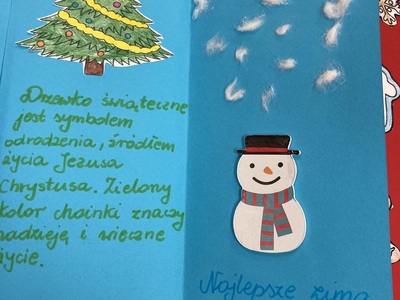 Drzewko świąteczne
jest symbolem
odrodzenia, źródłem
życia Jezusa
Chrystusa. Zielony
kolor choinki znaczy
nadzieję i wieczne
życie.
Najlepsze zima